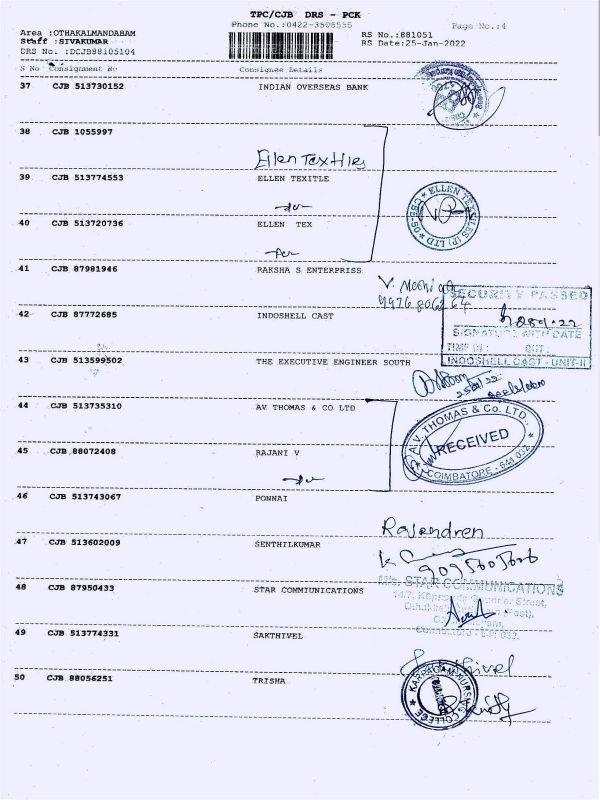 TPC/CJB DRS - PCK
Phone No.:0422-3505555
Page No.:4
Area :OTHAKALMANDABAM
Staff :SIVAKUMAR
DRS No. :DCJB88105104
RS No.:881051
RS Date:25-Jan-2022
S No Consignment No Consignee Details
37 CJB 513730152 INDIAN OVERSEAS BANK
38 CJB 1055997
Ellen Textiles
39 CJB 513774553 ELLEN TEXITLE
40 CJB 513720736 ELLEN TEX
ELLEN TEXTILES (P) LTD
41 CJB 87981946 RAKSHA S ENTERPRISS
42 CJB 87772685 INDOSHELL CAST
SECURITY PASSED
SIGNATURE WITH DATE
TIME IN : OUT :
INDOSHELL CAST - UNIT-II
43 CJB 513599502 THE EXECUTIVE ENGINEER SOUTH
44 CJB 513735310 AV THOMAS & CO LTD
A.V. THOMAS & Co. LTD.,
RECEIVED
COIMBATORE - 641 032
45 CJB 88072408 RAJANI V
46 CJB 513743067 PONNAI
Rajendren
47 CJB 513602009 SENTHILKUMAR
48 CJB 87950433 STAR COMMIUNICATIONS
M/s. STAR COMMUNICATIONS
49 CJB 513774331 SAKTHIVEL
50 CJB 88056251 TRISHA
KARPAGAM NURSING COLLEGE